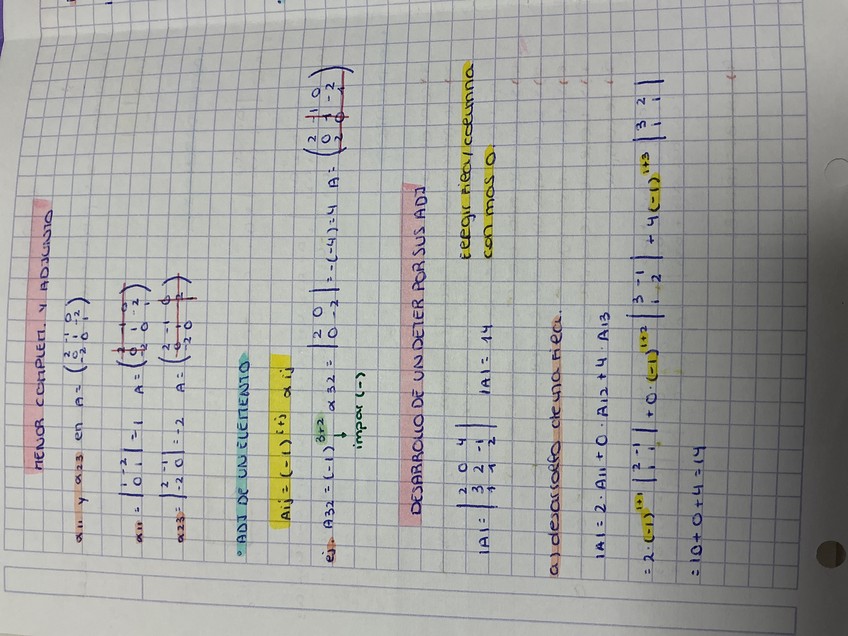 MENOR COMPLEM. Y ADJUNTO
α11 y α23 en A = (2 -1 0 / 0 1 -2 / -2 0 1)
α11 = |1 -2 / 0 1| = 1 A = (2 -1 0 / 0 1 -2 / -2 0 1)
α23 = |2 -1 / -2 0| = -2 A = (2 -1 0 / 0 1 -2 / -2 0 1)
• ADJ DE UN ELEMENTO
Aij = (-1)^i+j αij
ej. A32 = (-1)^3+2 α32 = |2 0 / 0 -2| = -(-4) = 4 A = (2 -1 0 / 0 1 -2 / -2 0 1)
impar (-)
DESARROLLO DE UN DETER POR SUS ADJ
|A| = |2 0 4 / 3 2 -1 / 1 1 2| |A| = 14
elegir fila/columna
con más 0.
a) desarrollo de una fila.
|A| = 2 · A11 + 0 · A12 + 4 A13
= 2 · (-1)^1+1 |2 -1 / 1 1| + 0 · (-1)^1+2 |3 -1 / 1 2| + 4 (-1)^1+3 |3 2 / 1 1|
= 10 + 0 + 4 = 14